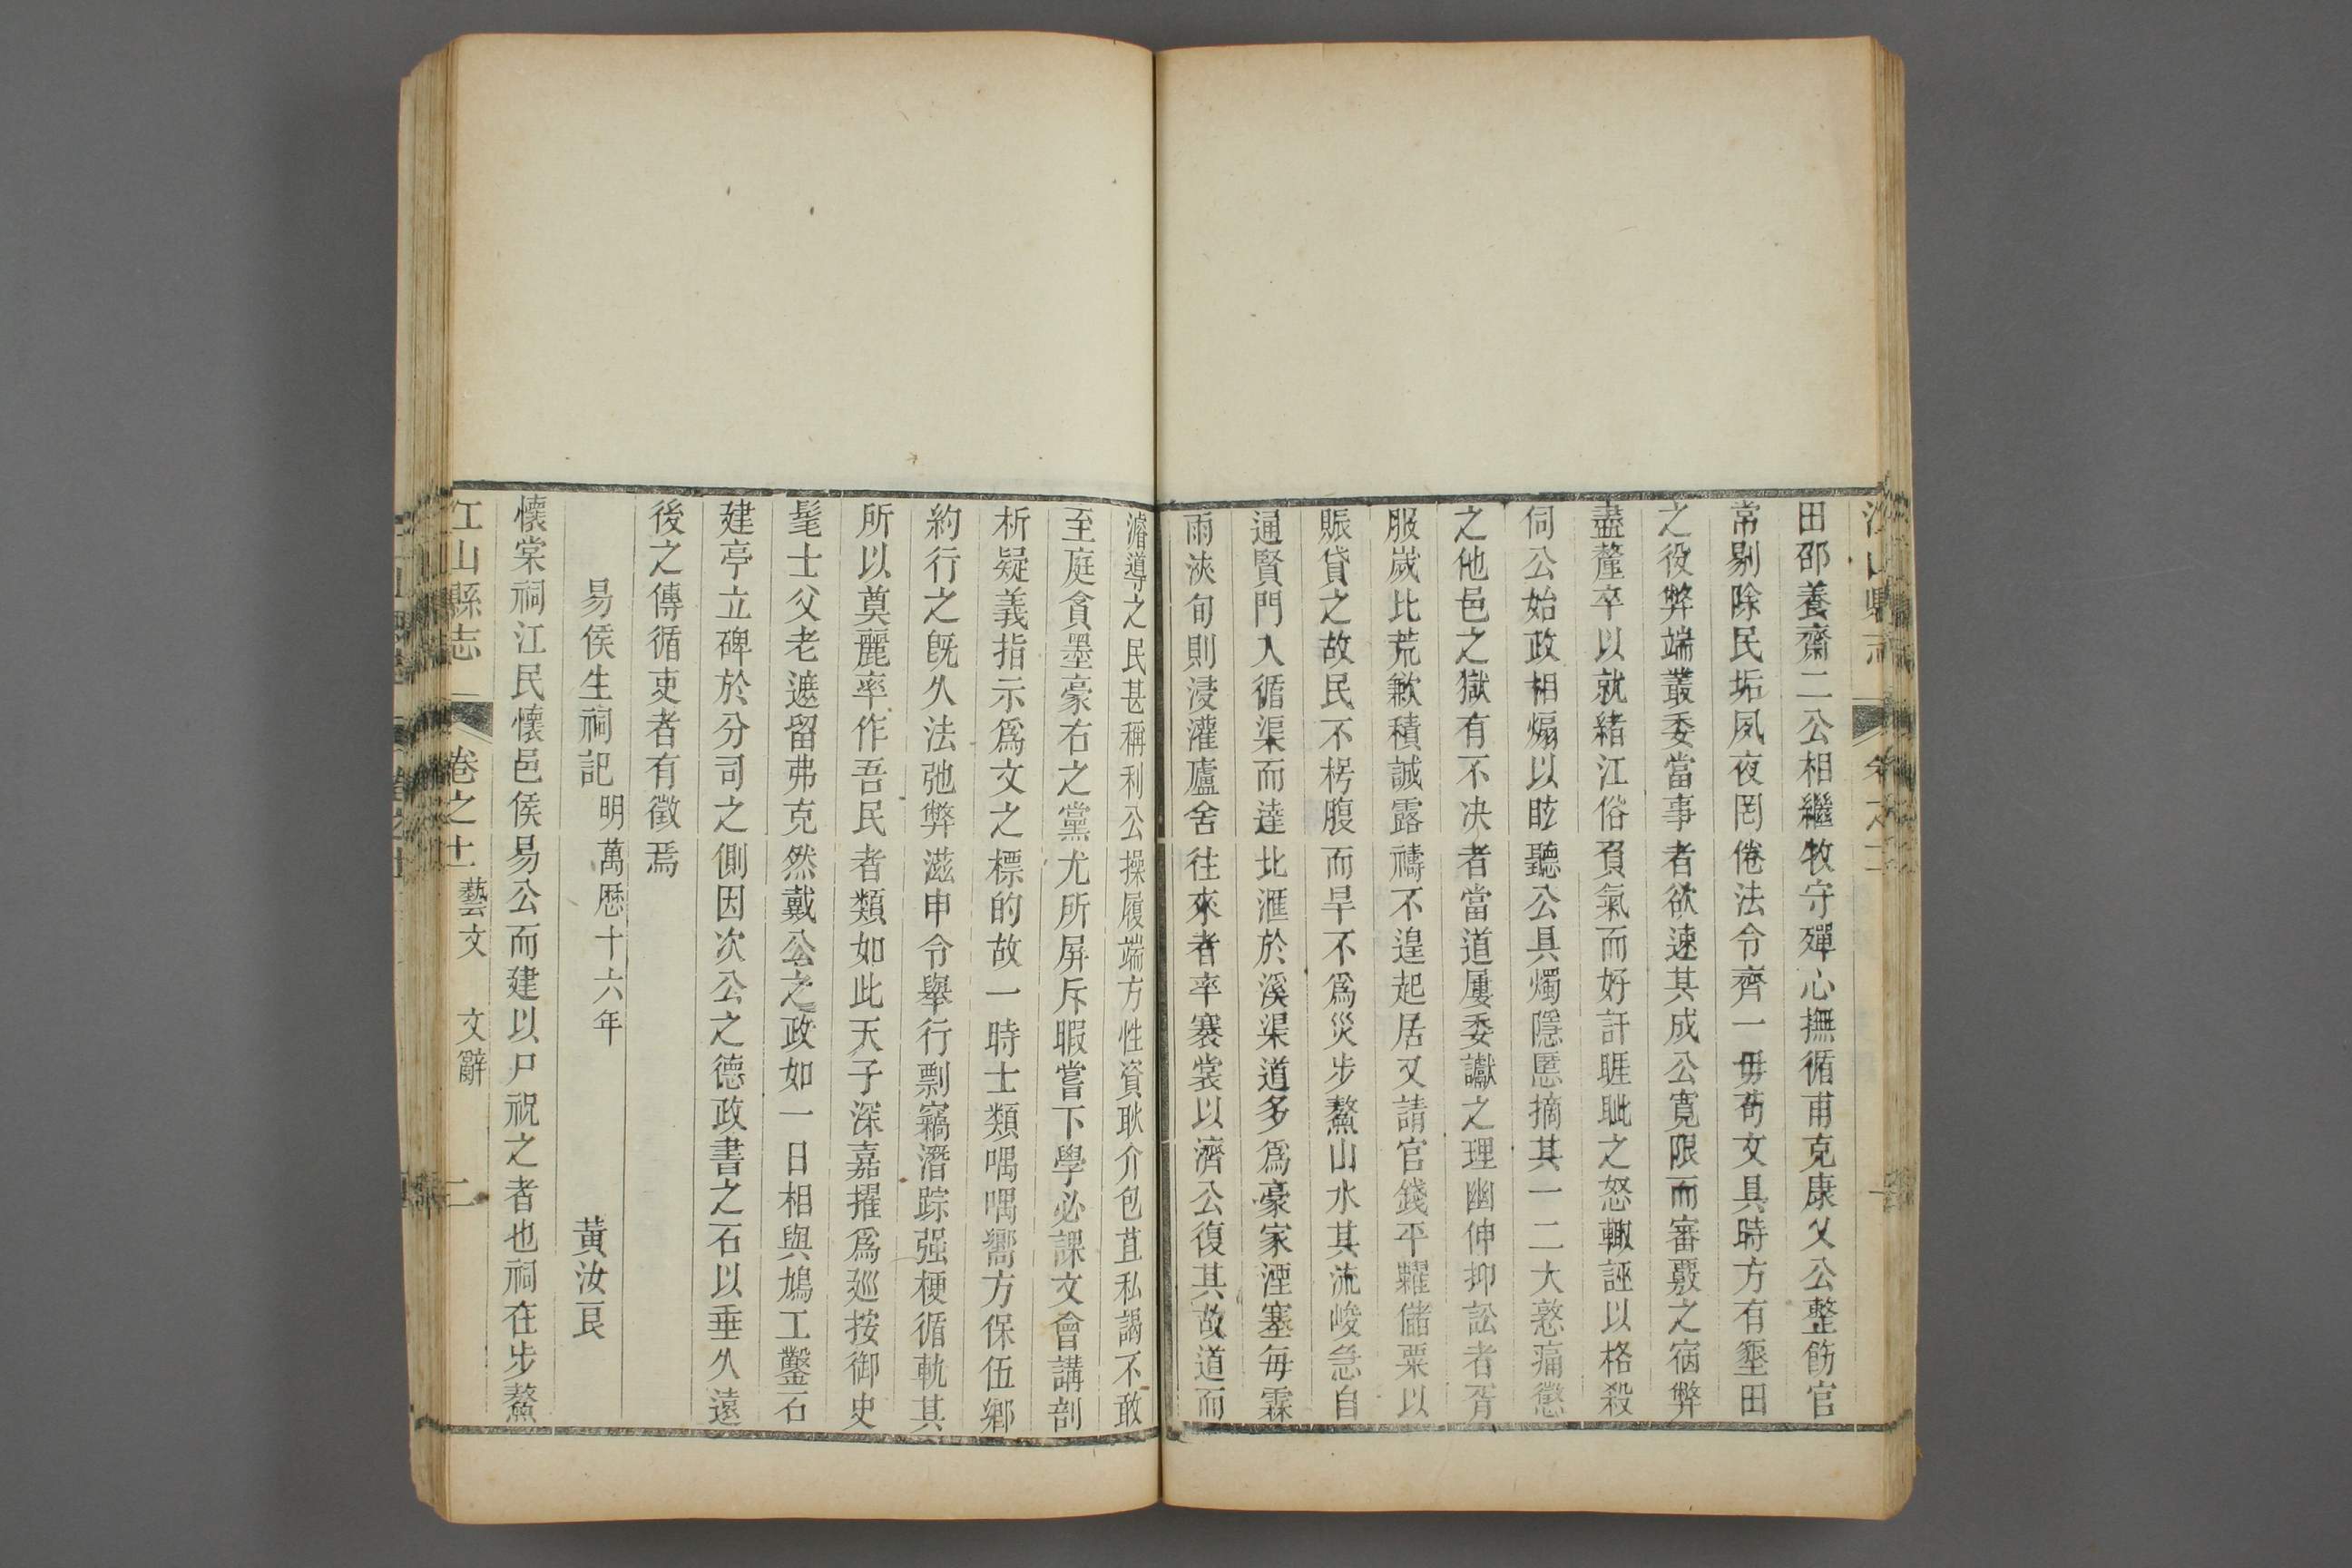 田邵養齋二公相繼牧守殫心撫循甫克康乂公整飭官
常剔除民垢夙夜罔倦法令齊一毋苟文具時方有墾田
之役弊端叢委當事者欲速其成公寬限而審覈之宿弊
盡釐卒以就緒江俗負氣而好訐睚眦之怒輙誣以格殺
伺公始政相煽以眩聽公具燭隱慝摘其一二大憝痛懲
之他邑之獄有不决者當道屢委讞之理幽伸抑訟者胥
服歲比荒歉積誠露禱不遑起居又請官錢平糶儲粟以
賑貸之故民不枵腹而旱不爲災步鰲山水其流峻急自
通賢門入循渠而達北滙於溪渠道多爲豪家湮塞每霖
雨浹旬則浸灌廬舍往來者率褰裳以濟公復其故道而
濬導之民甚稱利公操履端方性資耿介包苴私謁不敢
至庭貪墨豪右之黨尤所屏斥暇嘗下學必課文會講剖
析疑義指示爲文之標的故一時士類喁喁嚮方保伍鄉
約行之旣久法弛弊滋申令舉行剽竊潛踪强梗循軌其
所以奠麗率作吾民者類如此天子深嘉擢爲廵按御史
髦士父老遮留弗克然戴公之政如一日相與鳩工鑿石
建亭立碑於分司之側因次公之德政書之石以垂久遠
後之傳循吏者有徵焉
易侯生祠記 明萬厯十六年 黃汝良
懷棠祠江民懷邑侯易公而建以尸祝之者也祠在步鰲
江山縣志 卷之十一 藝文 文辭 二